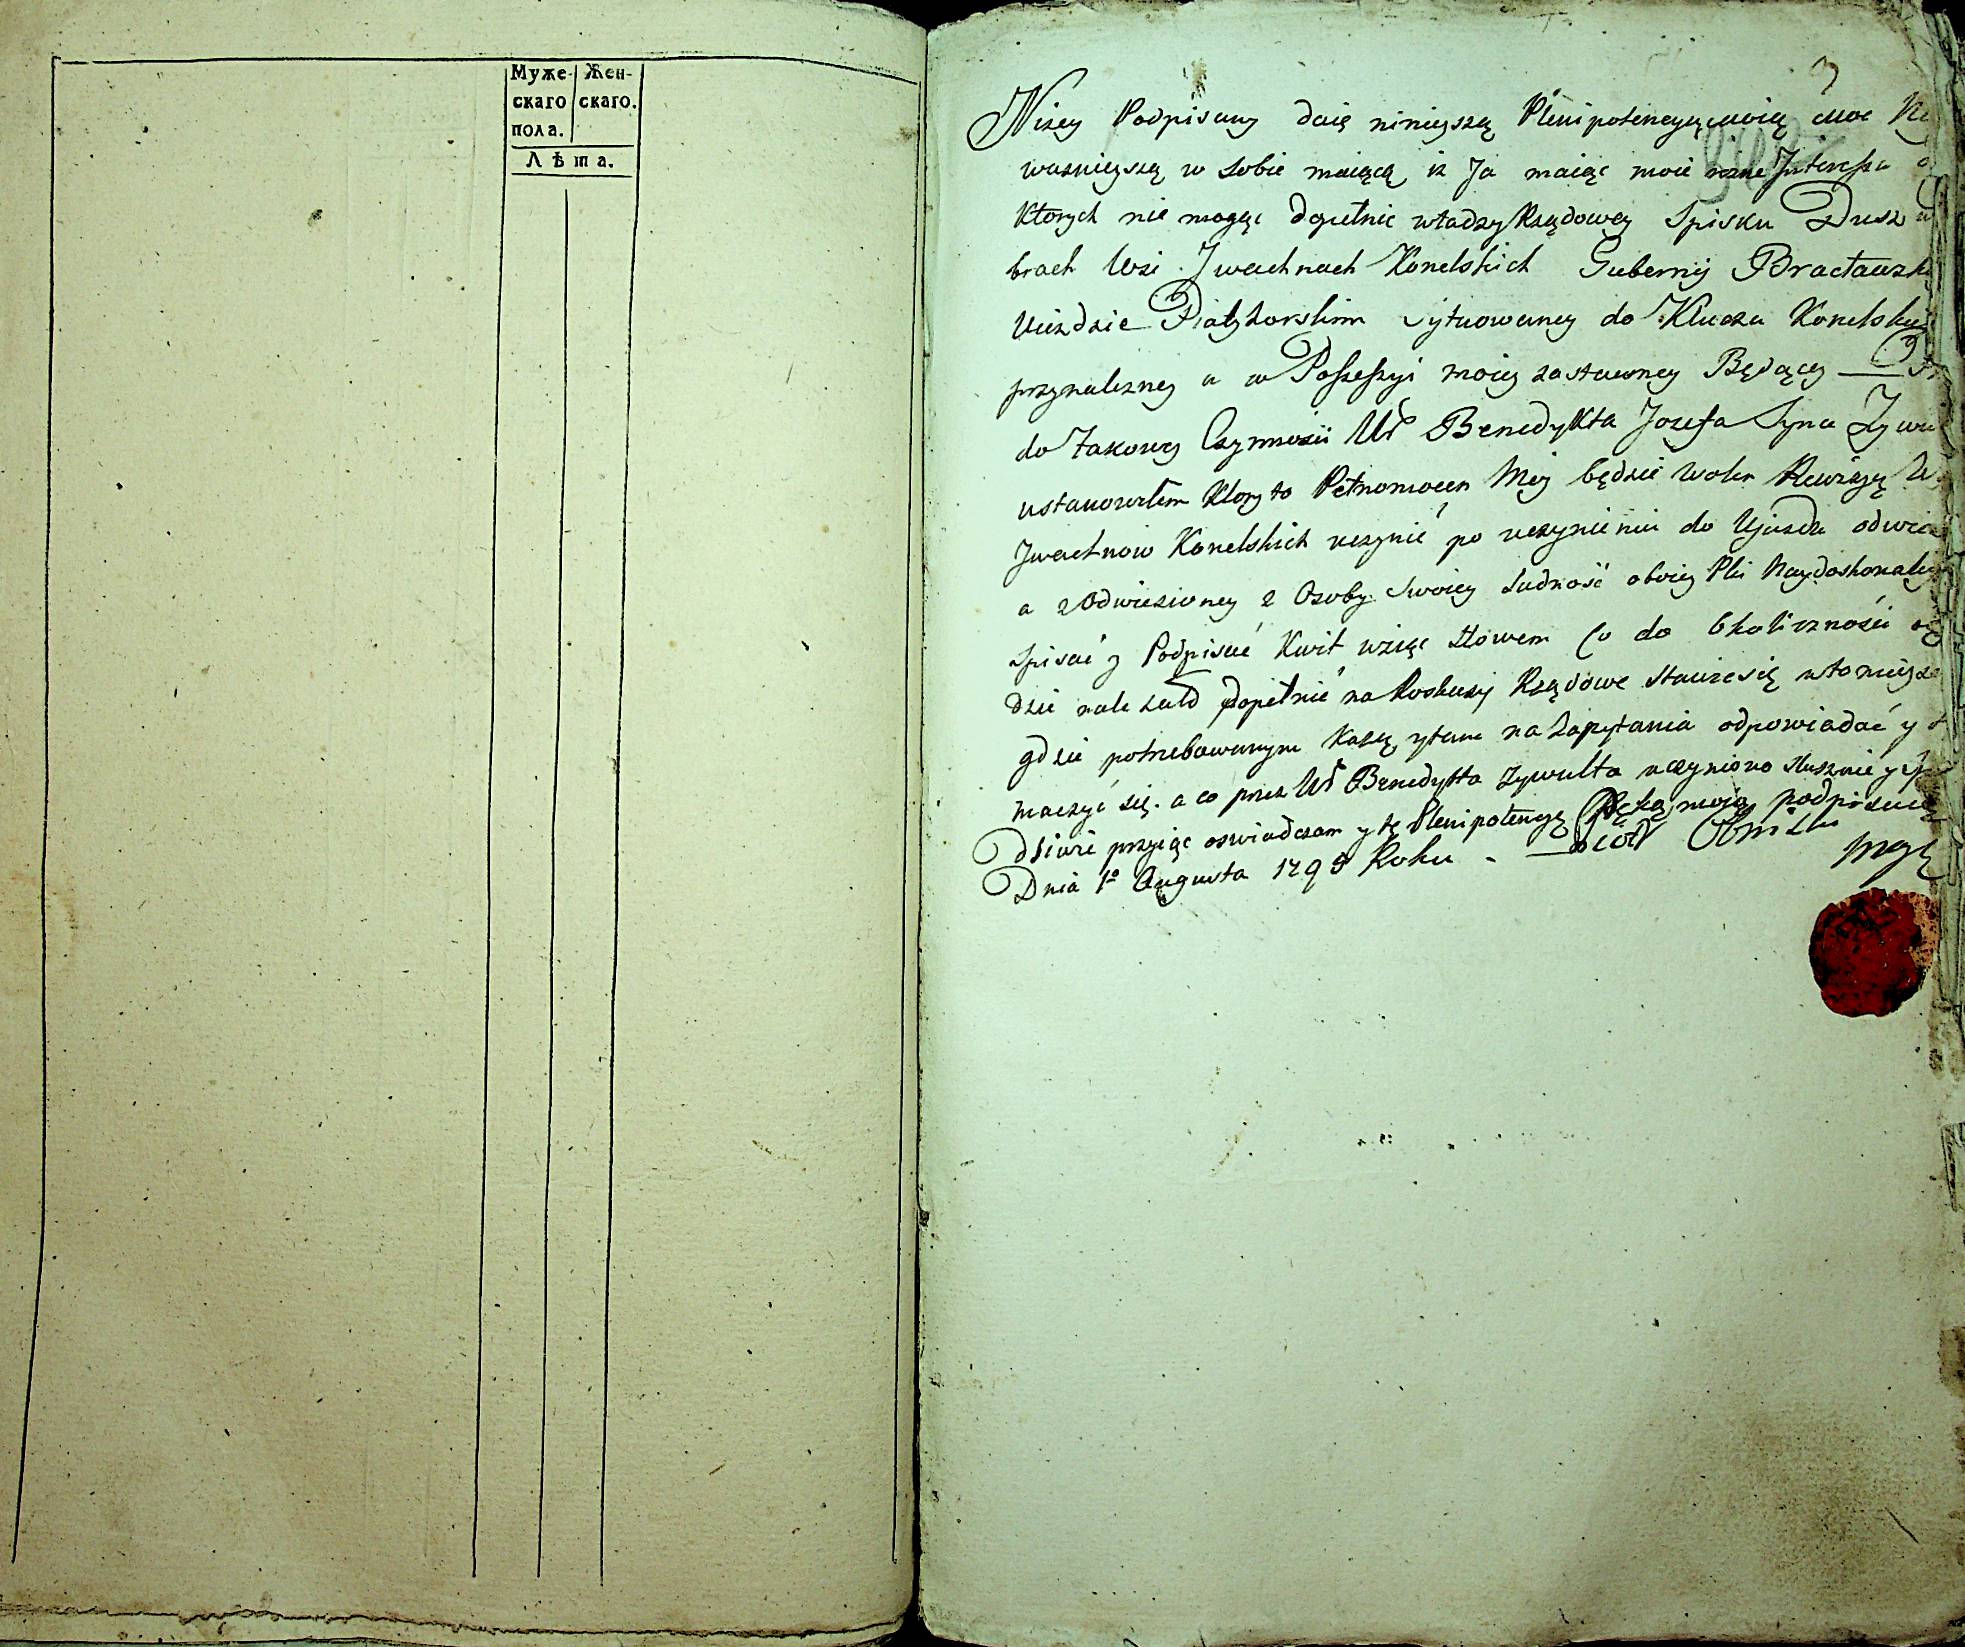 Муже- Жен-
скаго скаго.
пола.
Лѣта.
Niżey Podpisany daię ninieyszą Plenipotencyą moią moc
ważnieyszą w sobie maiącą iż Ja maiąc moie rożne Interessa
ktorych nie mogąc dopełnic władzy Rządowey Spisku Dusz
brach Wsi Jwachnach Konelskich Gubernij Bracławsk
Uiezdzie Piatyhorskim sytuowaney do Klucza Konelski
przynalezney a w Possessyi moiey zastawney Będącey
do takowey Czynnosci Ur Benedykta Jozefa Syna Zywu
ustanowiłem ktory to Pełnomocen Moy będzie wolen Rewizyą
Jwachnow Konelskich uczynić po uczynieniu do Ujazdu odwie
a z Odwiezioney z Osoby swoiey Ludność oboiey Płci Naydoskonaley
spisać y Podpisać Kwit wziąc słowem Co do Okoliczności
dzie nalezało dopełnić na Roskazy Rządowe stawić się w to mieysce
gdzie potrzebowanym każą, y tam na Zapytania odpowiadać y
maczyć się. a co przez Ur Benedykta Zywulta uczyniono słusznie y
dziwie przyiąc oswiadczam y tę Plenipotencyę Ręką moią podpisuię
Dnia 1º Augusta 1795 Roku -
mp